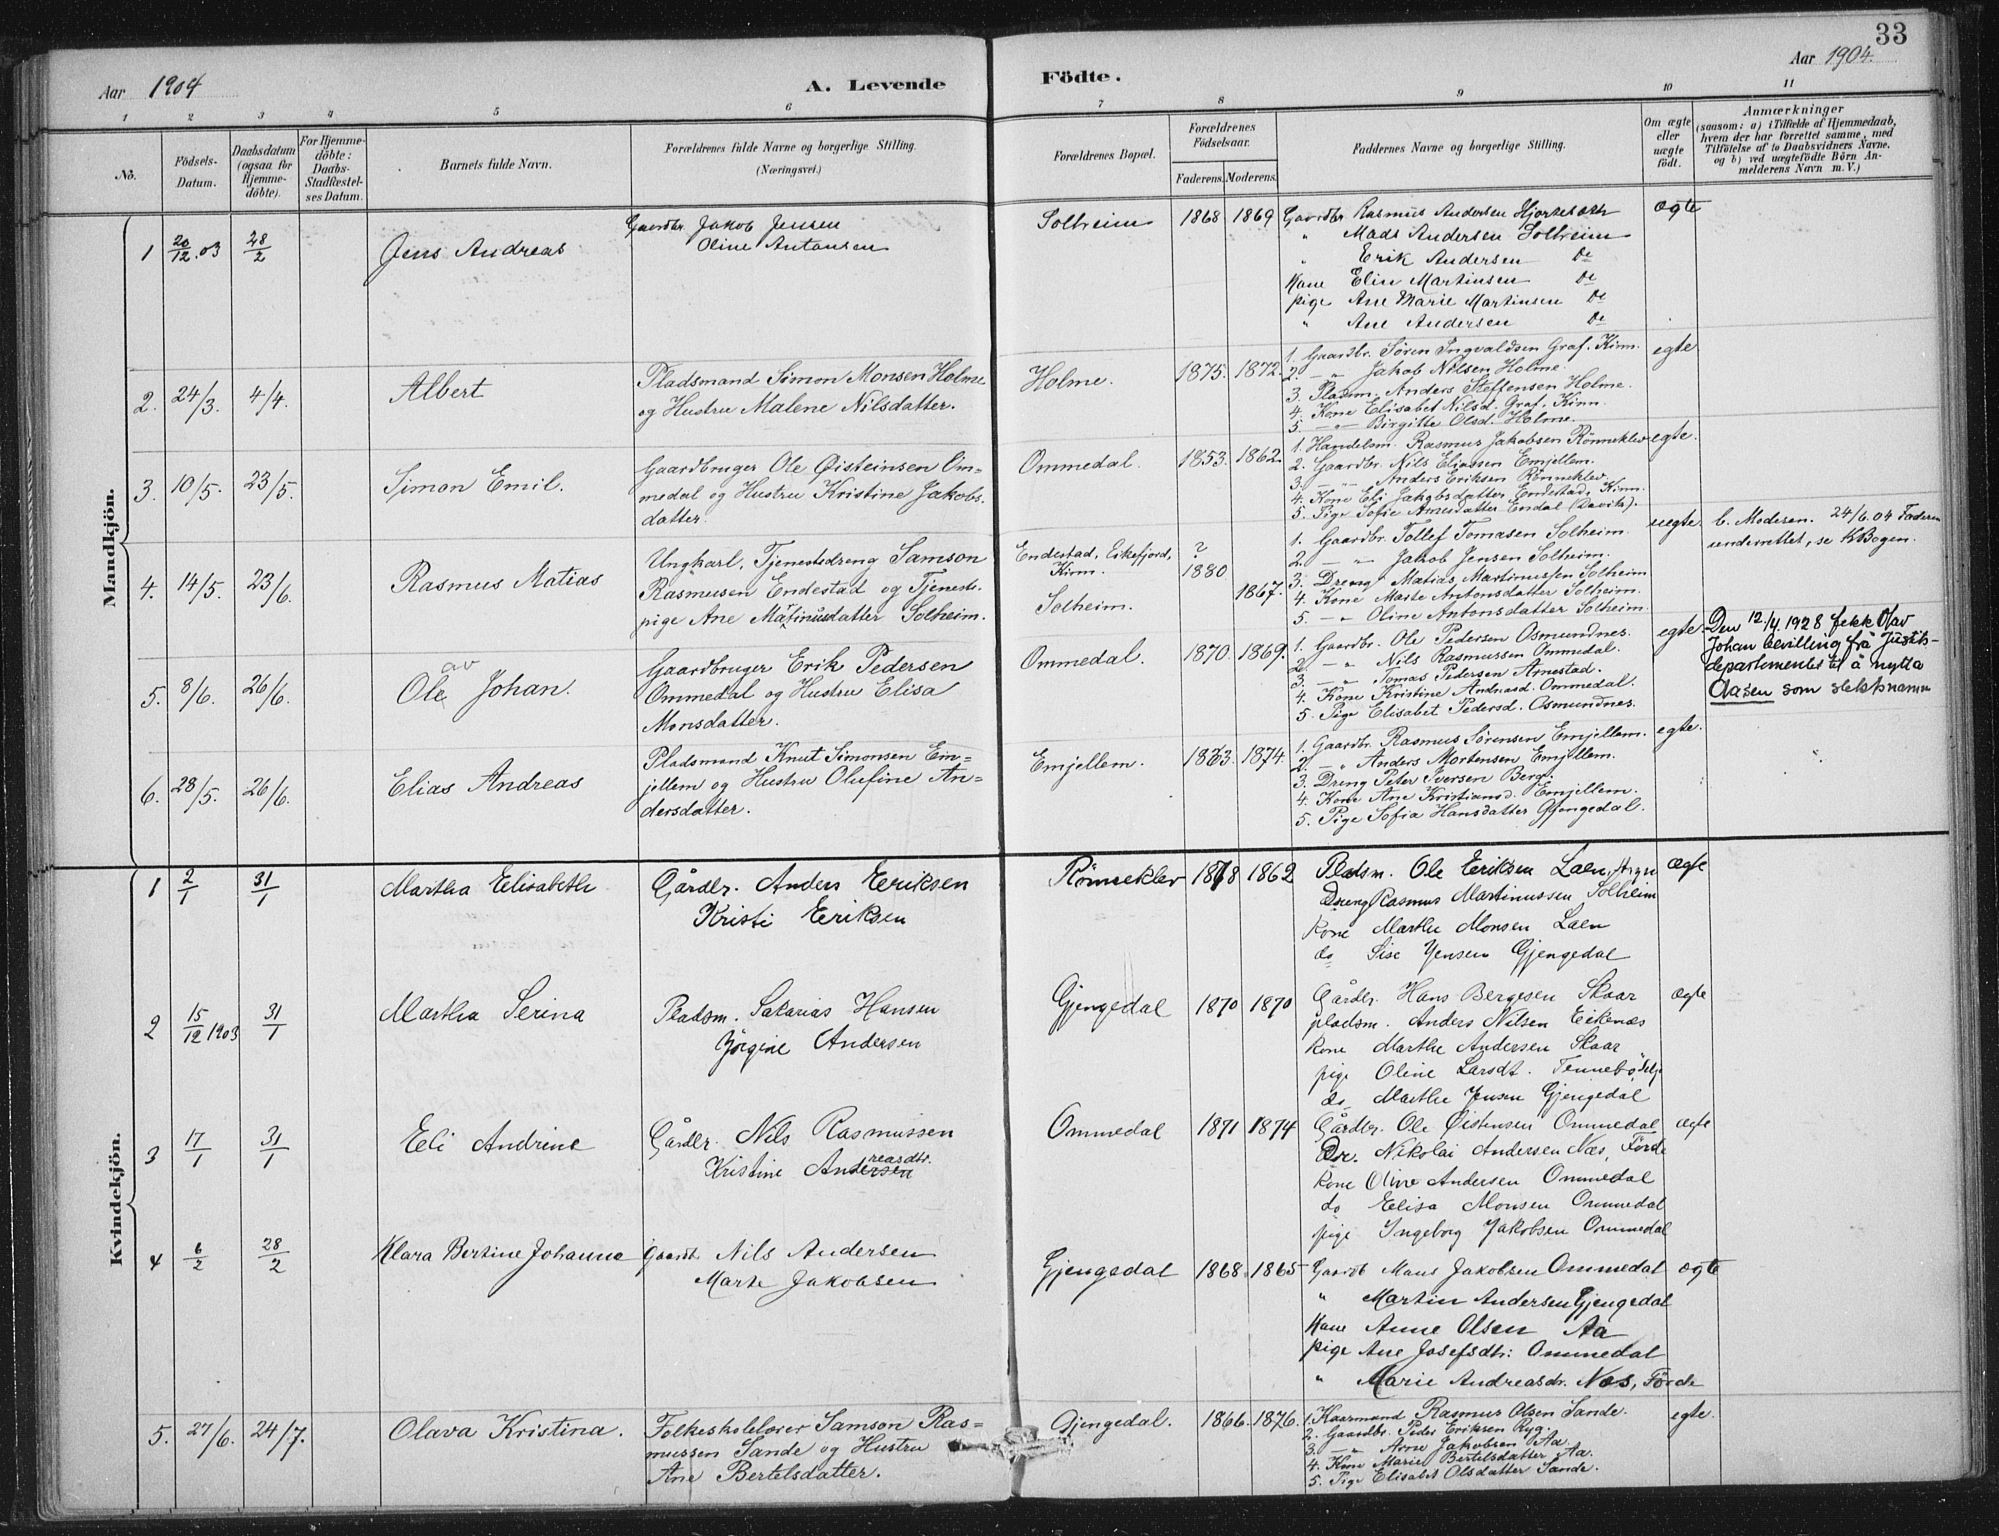 33
Aar 1904
A. Levende
Födte.
Aar 1904.
1 2 3 4 5 6 7 8 9 10 11
No.
Födsels-
Datum.
Daabsdatum
(ogsaa for
Hjemme-
döbte).
For Hjemme-
döbte:
Daabs-
Stadfæstel-
ses Datum.
Barnets fulde Navn.
Forældrenes fulde Navne og borgerlige Stilling.
(Næringsvei.)
Forældrenes Bopæl.
Forældrenes
Födselsaar.
Faderens. Moderens.
Faddernes Navne og borgerlige Stilling.
Om ægte
eller
uægte
födt.
Anmærkninger
(saasom: a) i Tilfælde af Hjemmedaab,
hvem der har forrettet samme, med
Tilföielse af to Daabsvidners Navne,
og b) ved uægtefödte Börn An-
melderens Navn m. V.)
Mandkjön.
1 20/12.03 28/2 Jens Andreas
Gaardbr. Jakob Jensen
Oline Antonsen
Solheim 1868 1869
Gaardbr Rasmus Andersen Hjorteseth
" Mads Andersen Solheim
" Erik Andersen Do
Kone Elin Martinsen Do
pige Ane Marie Martinsen Do
" Ane Andersen Do
ægte
2. 24/3. 4/4. Albert
Pladsmand Simon Monsen Holme
og Hustru Malene Nilsdatter.
Holme. 1875. 1872.
1. Gaardbr. Søren Ingvaldsen Graf. Kinn.
2. — " Jakob Nilsen Holme.
3. Pladsm. Anders Steffensen Holme.
4. Kone Elisabet Nilsd. Graf. Kinn.
5. — " — Birgitte Olsd. Holme.
egte
3. 10/5. 23/5. Simon Emil.
Gaardbruger Ole Øisteinsen Om-
medal og Hustru Kristine Jakobs-
datter.
Ommedal. 1853. 1862.
1. Handelsm. Rasmus Jakobsen Rønneklev
2. Gaardbr. Nils Eliassen Emjellem.
3. — " — Anders Eriksen Rönneklev.
4. Kone Eli Jakobsdatter Endestad, Kinn.
5. Pige Sofie Arnesdatter Endal (Davik).
egte.
4. 14/5. 23/6. Rasmus Matias
Ungkarl, Tjenestedreng Samson
Rasmusen Endestad og Tjeneste-
pige Ane Matinusdatter Solheim.
Endestad, Eikefjord,
Kinn.
Solheim.
? 1880 1867.
1. Gaardbr. Tollef Tomasen Solheim.
2. — " — Jakob Jensen Solheim.
3. Dreng Matias Martinussen Solheim
4. Kone Marte Antonsdatter Solheim.
5. — " — Oline Antonsdatter Solheim.
uegte.
b. Moderen. 24/6.04 Faderen
underrettet, se KBogen.
5. 8/6. 26/6. Ole Johan.
av
Gaardbruger Erik Pedersen
Ommedal og Hustru Elisa
Monsdatter.
Ommedal. 1870. 1869.
1. Gaardbr. Ole Pedersen Osmundnes.
2. — " Nils Rasmussen Ommedal.
3. — " Tomas Pedersen Arnestad.
4. Kone Kristine Andreasd. Ommedal.
5. Pige Elisabet Pedersd. Osmundnes.
egte.
Den 12/4 1928 fekk Olav
Johan bevilling frå Justis-
departementet til å nytta
Aasen som slektsnamn
6. 28/5. 26/6. Elias Andreas
Pladsmand Knut Simonsen Em-
jellem og Hustru Olufine An-
dersdatter.
Emjellem. 1873. 1874.
1. Gaardbr. Rasmus Sørensen Emjellem.
2. — " Anders Mortensen Emjellem.
3. Dreng Peter Iversen Berg.
4. Kone Ane Kristiansd. Emjellem.
5. Pige Sofia Hansdatter Gjengedal.
egte.
Kvindekjön.
1 2/1 31/1 Martha Elisabeth
Gårdbr. Anders Eriksen
Kristi Eriksen
Rönneklev 1868 1862
Pladsm. Ole Eriksen Laen,
Dreng Rasmus Martinussen Solheim
Kone Marthe Monsen Laen
do Sise Jensen Gjengedal
Ægte
2 15/12 1903 31/1 Martha Serina
Pladsm. Sakarias Hansen
Jörgine Andersen
Gjengedal 1870 1870
Gårdbr. Hans Bergesen Skaar
pladsm. Anders Nilsen Eikenæs
Kone Marthe Andersen Skaar
pige Oline Larsdt. Tennebö, Selje
do Marthe Jensen Gjengedal
Ægte
3 17/1 31/1 Eli Andrine
Gårdbr. Nils Rasmussen
Kristine Andersen
reasdtr.
Ommedal 1871 1874
Gårdbr. Ole Øistensen Ommedal
Dr. Nikolai Andersen Næs, Förde
Kone Oline Andersen Ommedal
do Elisa Monsen Ommedal
pige Ingeborg Jakobsen Ommedal
Ægte
4 6/2 28/2 Klara Bertine Johanne
Gaardb. Nils Andersen
Marte Jakobsen
Gjengedal 1868. 1865
Gaardb Mons Jakobsen Ommedal
" Martin Andersen Gjengedal
Kone Anne Olsen Aa
pige Ane Josefsdtr: Ommedal
" Marie Andreasdr. Nes, Förde
ægte
5. 27/6. 24/7. Olava Kristina.
Folkeskolelærer Samson Ras-
mussen Sande og Hustru
Ane Bertelsdatter.
Gjengedal. 1866. 1876.
1. Kaarmand Rasmus Olsen Sande.
2. Gaardbr. Peder Eriksen Ryg.
3. — " Arne Jakobsen Aa.
4. Kone Marie Bertelsdatter Aa.
5. Pige Elisabet Olsdatter Sande.
egte.